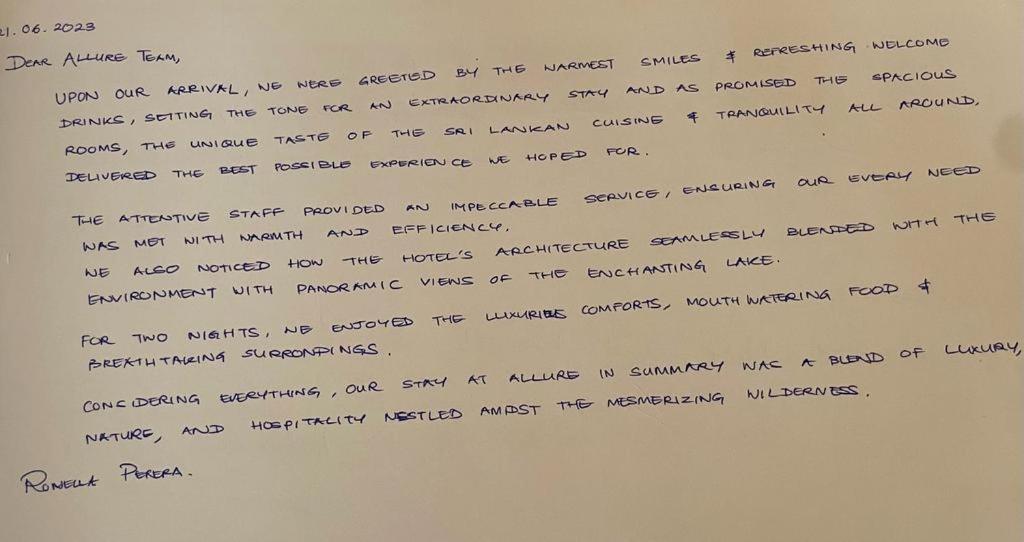 21.06.2023
DEAR ALLURE TEAM,
UPON OUR ARRIVAL, WE WERE GREETED BY THE WARMEST SMILES & REFRESHING WELCOME
DRINKS, SETTING THE TONE FOR AN EXTRAORDINARY STAY AND AS PROMISED THE SPACIOUS
ROOMS, THE UNIQUE TASTE OF THE SRI LANKAN CUISINE & TRANQUILITY ALL AROUND,
DELIVERED THE BEST POSSIBLE EXPERIENCE WE HOPED FOR.
THE ATTENTIVE STAFF PROVIDED AN IMPECCABLE SERVICE, ENSURING OUR EVERY NEED
WAS MET WITH WARMTH AND EFFICIENCY.
WE ALSO NOTICED HOW THE HOTEL'S ARCHITECTURE SEAMLESSLY BLENDED WITH THE
ENVIRONMENT WITH PANORAMIC VIEWS OF THE ENCHANTING LAKE.
FOR TWO NIGHTS, WE ENJOYED THE LUXURIES COMFORTS, MOUTH WATERING FOOD &
BREATHTAKING SURRONDINGS.
CONSIDERING EVERYTHING, OUR STAY AT ALLURE IN SUMMARY WAS A BLEND OF LUXURY,
NATURE, AND HOSPITALITY NESTLED AMIDST THE MESMERIZING WILDERNESS.
RONELLA PERERA.